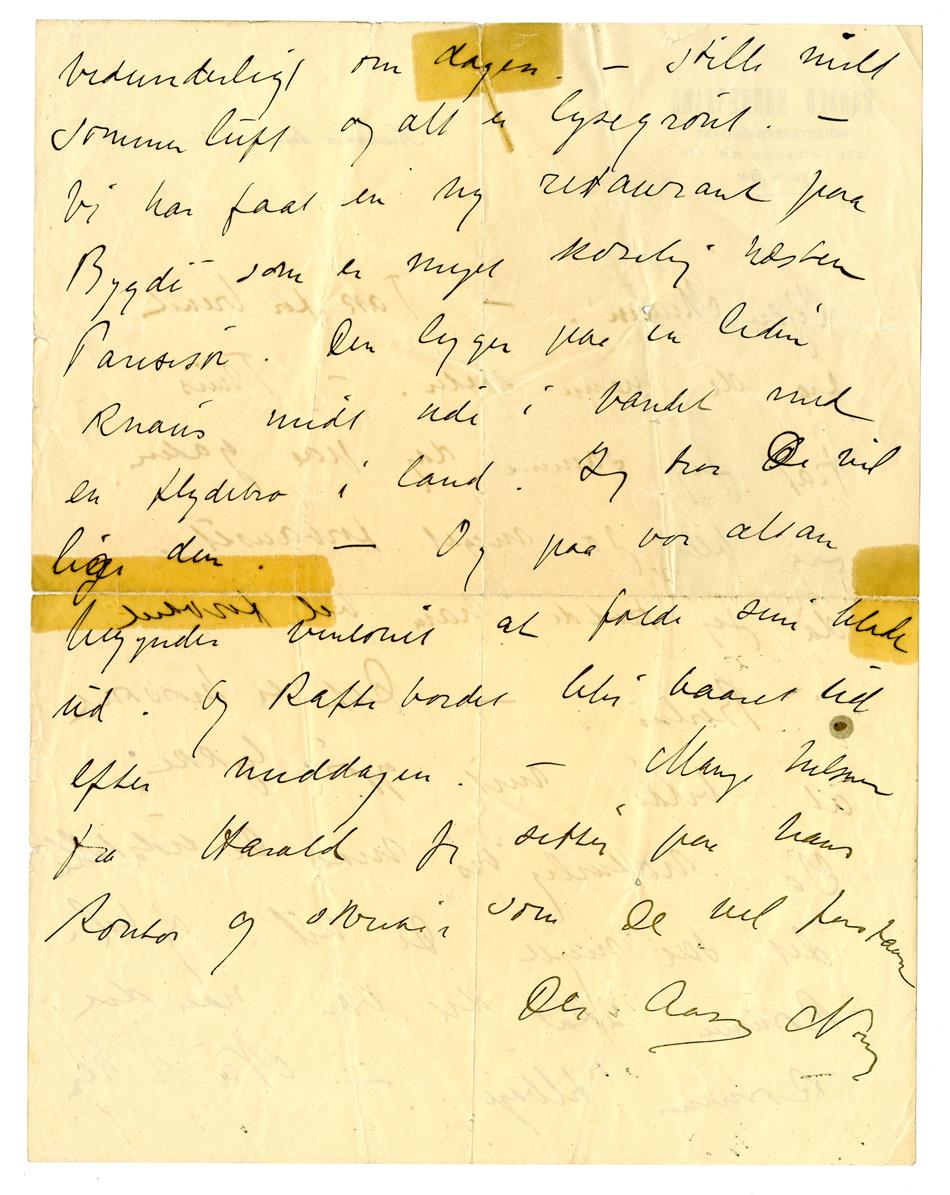 vidunderligt om dagen. – stille mild
sommerluft og alt er lysegrønt. –
Vi har faat en ny restaurant paa
Bygdö som er meget koselig næsten
Pariserisk. Den ligger paa en liden
knaus midt ude i vandet med
en flydebro i land. Jeg tror De vil
lige den. – Og paa vor altan
begynder vinløvet at folde sine blade
ud. Og kaffebordet blir baaret ud
efter middagen. – Mange hilsner
fra Harald jeg sitter paa hans
kontor og skriver som De vel forstaar
Deres Aase